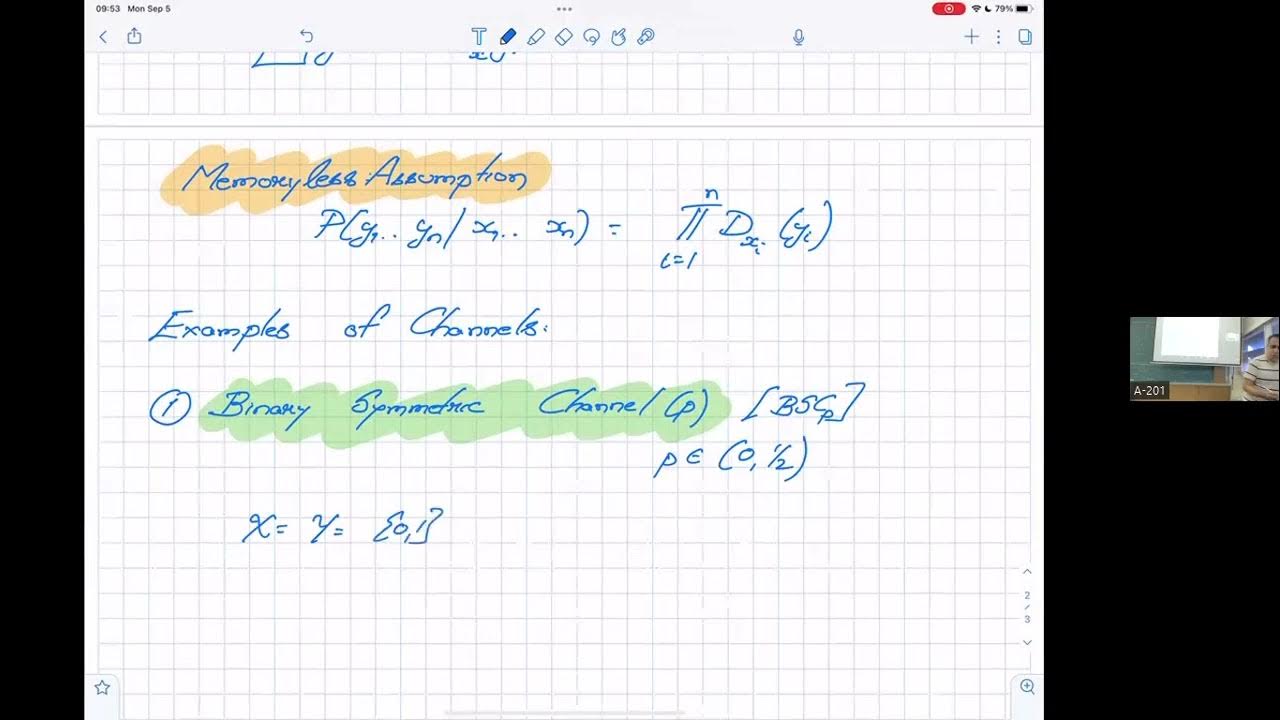 09:53 Mon Sep 5
79%
Memoryless Assumption
P(y₁.. yₙ / x₁.. xₙ) = ∏ⁿᵢ₌₁ D_{xᵢ} (yᵢ)
Examples of Channels:
① Binary Symmetric Channel (p) [BSCₚ]
p ∈ (0, 1/2)
X = Y = {0,1}
2
/
3
A-201